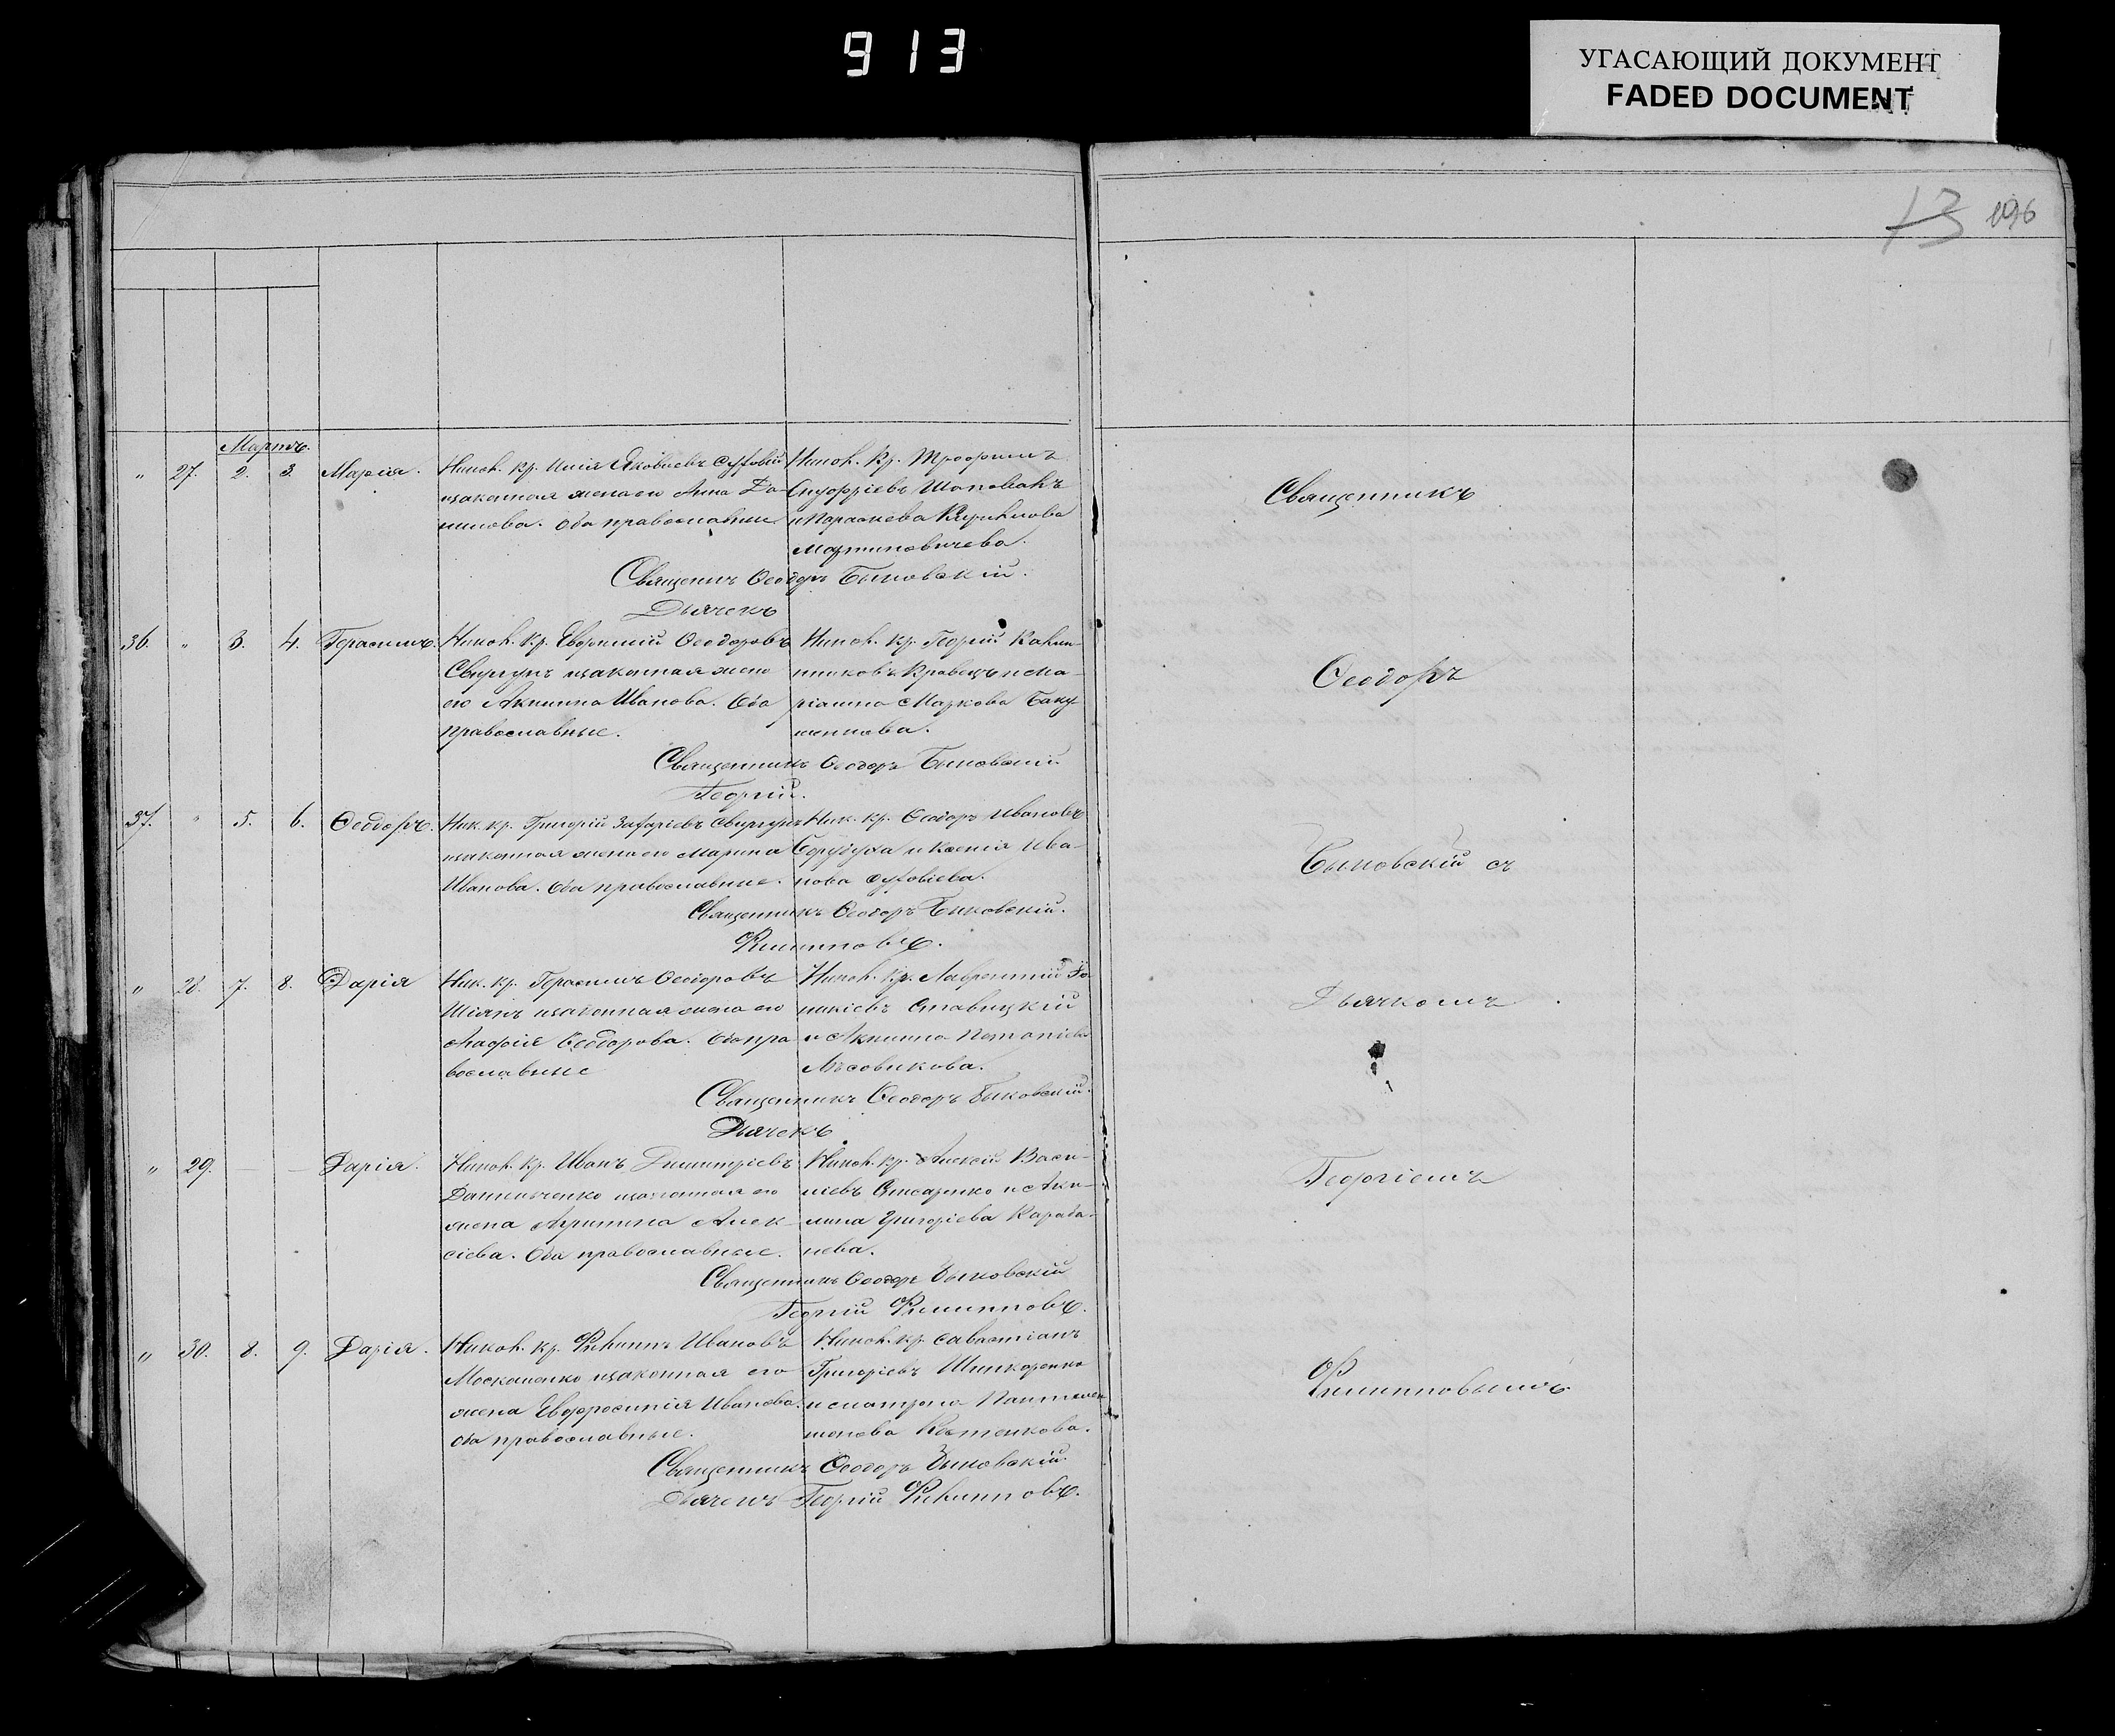 913
УГАСАЮЩИЙ ДОКУМЕНТ
FADED DOCUMENT
13 196
Мартъ.
" 27. 2. 3. Марія.
Никол. кр. Илія Яковлевъ Сутовій
изаконная жена его Анна Да-
нилова. Оба православные.
Никол. Кр. Трофимъ
Онуфріевъ Шаповалъ
и Параскева Кирилова
Мартиновичева.
Священикъ Ѳеодоръ Быковскій.
Дьячекъ
36. " 3. 4. Герасимъ.
Никол. Кр. Евфимій Ѳеодоровъ
Свиргунъ изаконная жена
его Акилина Иванова. Оба
православные.
Никол. кр. Георгій
Кравецъ и Ма-
ріанна Маркова Баку-
менкова.
Священникъ Ѳеодоръ Быковскій
Георгій.
37. " 5. 6. Ѳеодоръ.
Ник. кр. Григорій Захаріевъ Свиргунъ
изаконная жена его Марина
Иванова. Оба православные.
Ник. кр. Ѳеодоръ Ивановъ
и Ксенія Ива-
нова
Священникъ Ѳеодоръ Быковскій.
Филипповъ.
" 28. 7. 8. Дарія
Ник. кр. Герасимъ Ѳеодоровъ
Шіянъ изаконная жена его
Агафія Ѳеодорова. Оба пра-
вославные
Никол. Кр. Лаврентій Іо-
никіевъ Ставицкій
и Акилина Потапіева
Лѣсовикова.
Священникъ Ѳеодоръ Быковскій.
Дьячекъ
" 29. — — Дарія.
Никол. Кр. Иванъ Димитріевъ
Данильченко изаконная его
жена Агрипина Алек-
сіева. Оба православные.
Никол. кр. Алексій Васи-
ліевъ Слисаренко и Аки-
лина Григоріева Караба-
нева.
Священникъ Ѳеодоръ Быковскій
Георгій Филипповъ.
" 30. 8. 9. Дарія.
Никол. кр. Филиппъ Ивановъ
Москаленко изаконная его
жена Евфросинія Иванова.
Оба православные.
Никол. кр. Савастіанъ
Григоріевъ Шинкаренко
и Матрона Пантелей-
монова Костенкова.
Священникъ Ѳеодоръ Быковскій.
Дьячекъ Георгій Филипповъ.
Священникъ
Ѳеодоръ
Быковскій съ
Дьячкомъ
Георгіемъ
Филипповымъ.